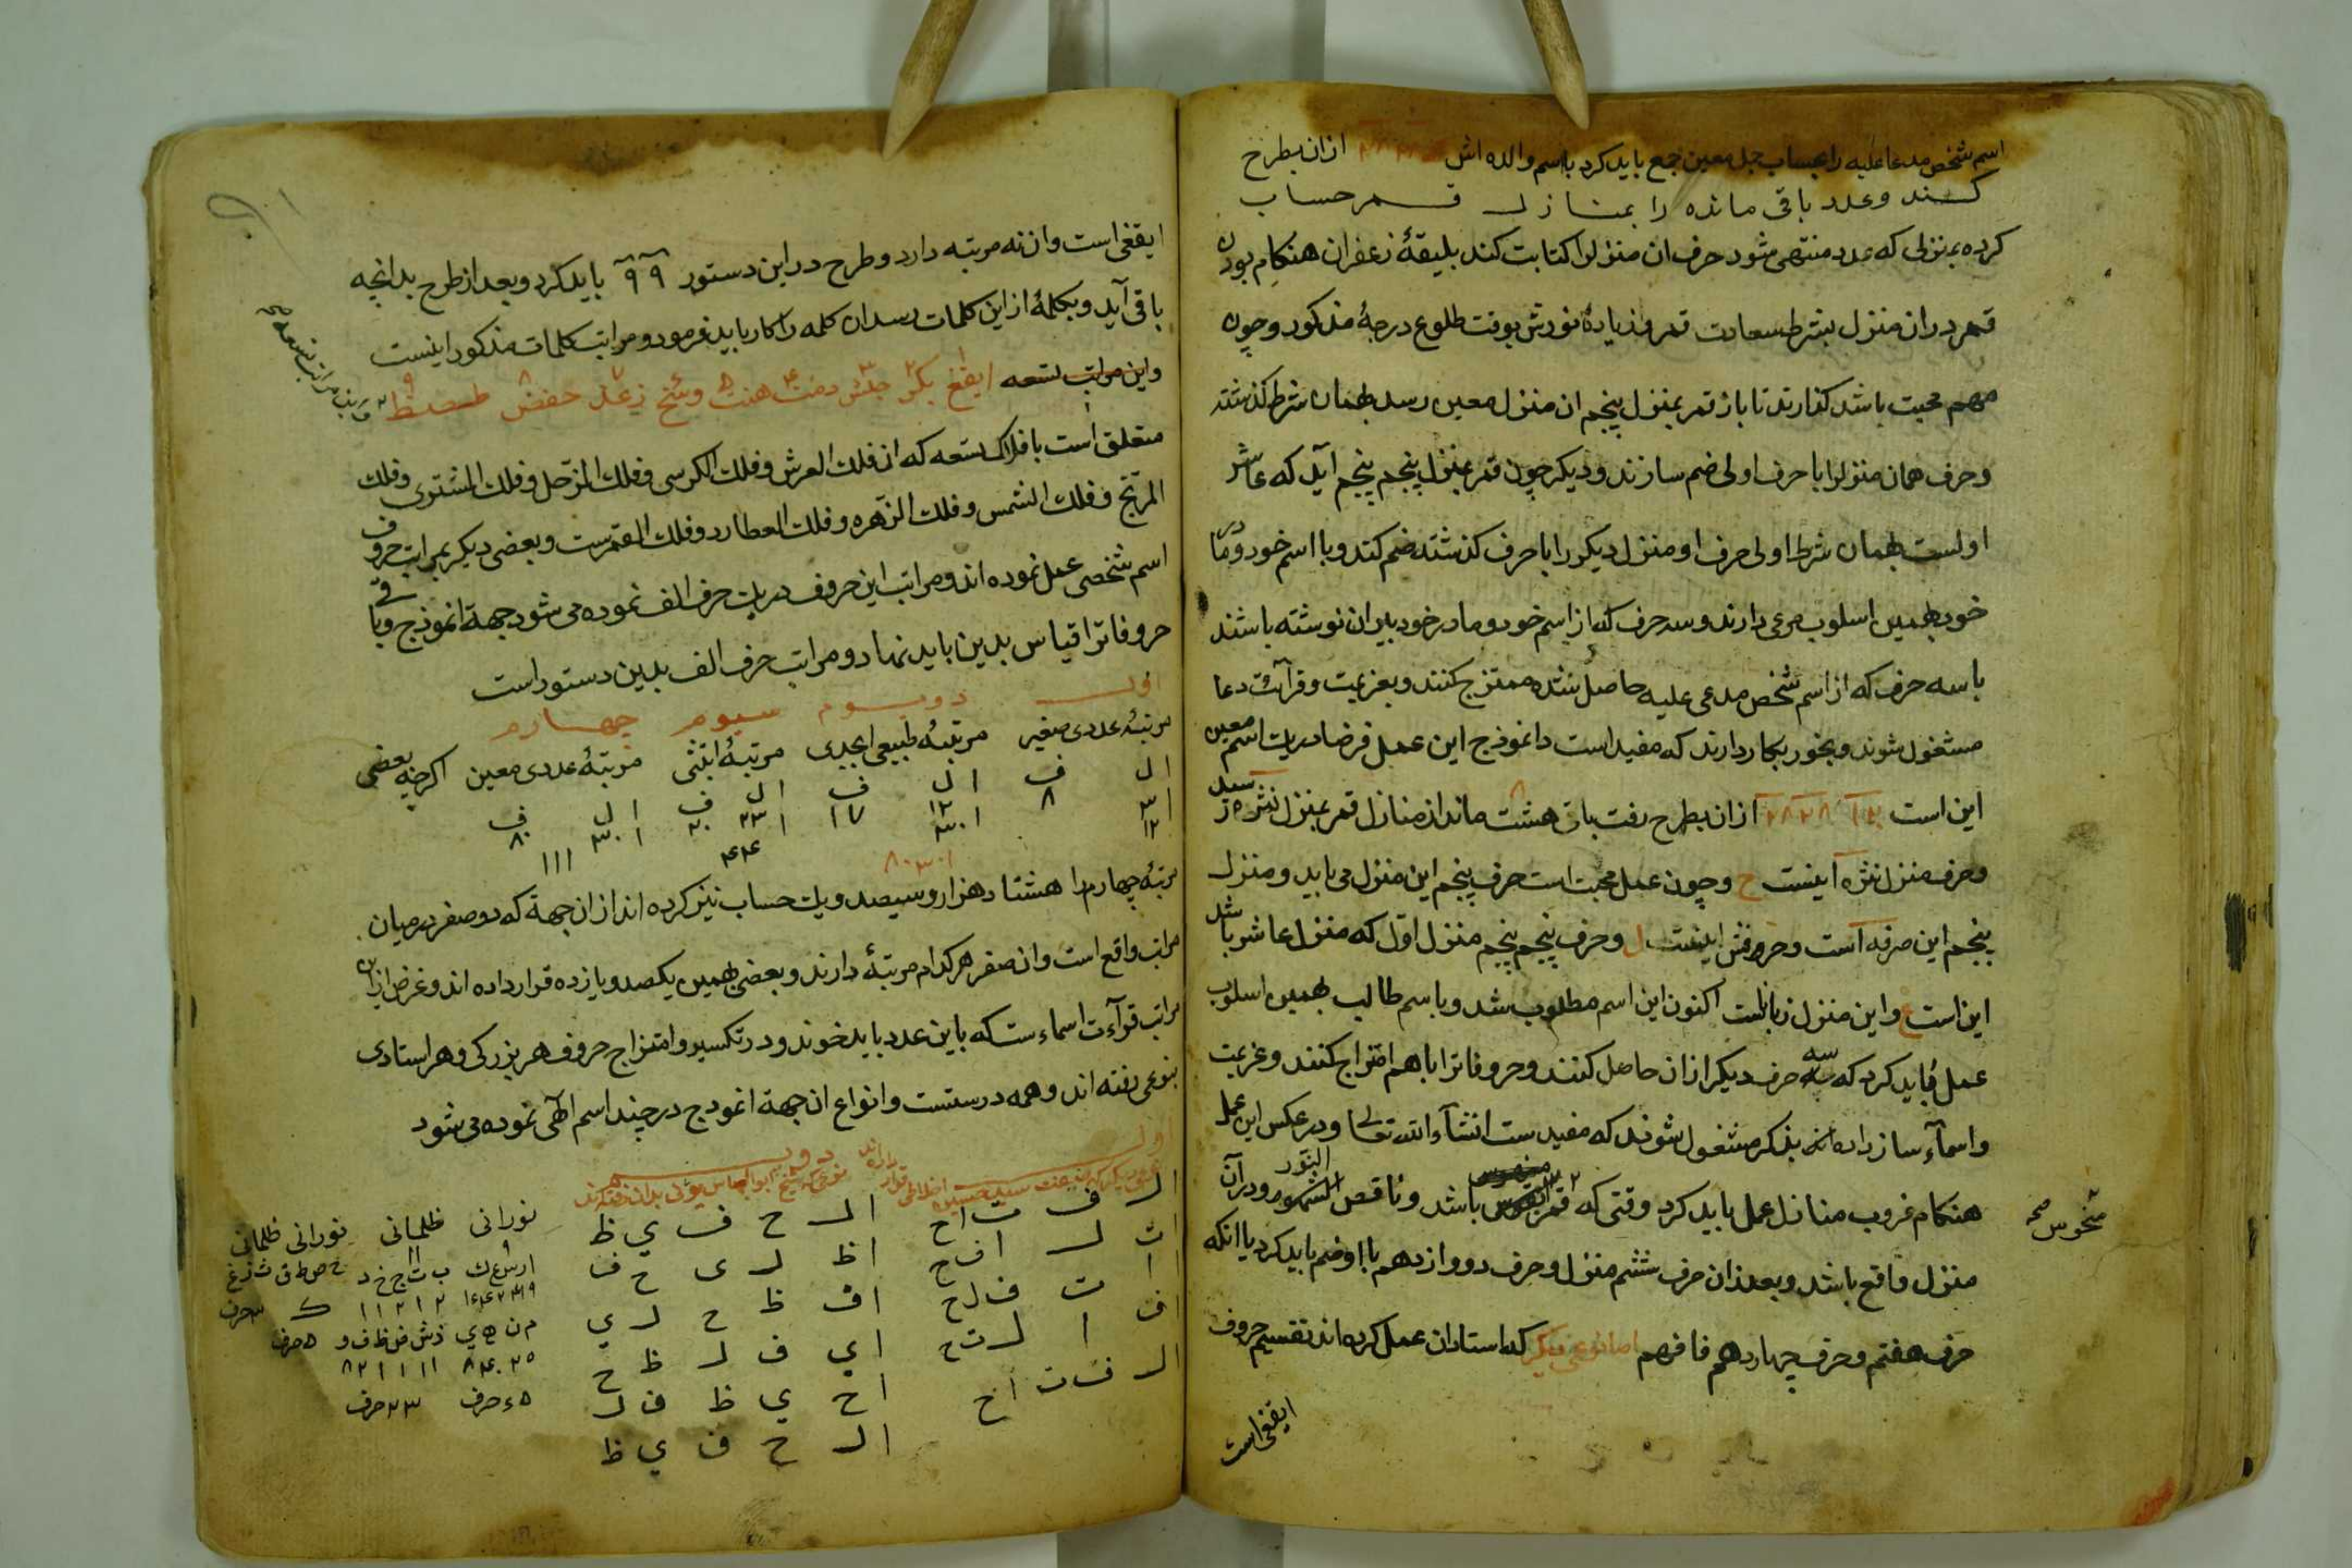 اسم شخص مدعا علیه را بحساب جمل معین جمع باید کرد با اسم والده اش ازان بطرح
کنند وعدد باقی مانده را بمنازل قمر حساب
کرده بمنزلی که عدد منتهی شود حرف ان منزلرا کتابت کند بلیقهٔ زعفران هنکام بودن
قمر دران منزل بشرط سعادت قمر وزیادهٔ نورش بوقت طلوع درجهٔ مذکور وچون
مهم محبت باشد کذارند تا باز قمر بمنزل پنجم ان منزل معین رسد بهمان شرط کذشته
وحرف همان منزلرا با حرف اولی ضم سازند ودیکر چون قمر بمنزل پنجم پنجم آید که عاشر
اولست بهمان شرط اولی حرف او منزل دیکر را با حرف کذشته ضم کند وبا اسم خود ومادر
خود بهمین اسلوب مرعی دارند وسه حرف که از اسم خود ومادر خود بیران نوشته باشند
با سه حرف که از اسم شخص مدعی علیه حاصل شده ممتزج کنند وبعزیمت وقرآئت دعا
مشغول شوند وبخور بکار دارند که مفید است وانموذج این عمل فرضا دریات اسم معین
این است ازان بطرح رفت باقی هشت ماند از منازل قمر بمنزل نثره رسد
وحرف منزل نثره اینست ح وچون عمل محبت است حرف پنجم این منزل می باید ومنزل
پنجم این صرفه است وحروفش اینست ل وحرف پنجم پنجم منزل اول که منزل عاشر باشد
این است ع واین منزل زباناست اکنون این اسم مطلوب شد وباسم طالب بهمین اسلوب
عمل باید کرد که سه حرف دیکر ازان حاصل کنند وحروفاترا باهم امتزاج کنند وعزیمت
واسمآء سازند بذکر مشغول شوند که مفید ست انشآء الله تعالی ودر عکس این عمل
هنکام غروب منازل عمل باید کرد وقتی که قمر منحوس باشد وناقص النور ودرآن
منزل واقع باشد وبعد ازان حرف ششم منزل وحرف دووازدهم با او ضم باید کرد یا انکه
حرف هفتم وحرف چهاردهم فافهم اما نوعی دیکر که استادان عمل کرده اند تقسیم حروف
منحوس صح
ایقغی است
ایقغی است وان نه مرتبه دارد وطرح در این دستور ۹ ۹ باید کرد وبعد از طرح بدانچه
باقی آید وبکلمهٔ از این کلمات رسد ان کلمه را کار باید فرمود ومراتب کلمات مذکور اینست
واین مراتب تسعه ایقغ بکر جلش دمت هنث وسخ زعذ حفض طصظ
متعلق است بافلاک تسعه که ان فلك العرش وفلك الکرسی وفلك الزحل وفلك المشتری وفلك
المریخ وفلك الشمس وفلك الزهره وفلك العطارد وفلك القمرست وبعضی دیکر بمراتب حروف
اسم شخصی عمل نموده اند ومراتب این حروف دریات حرف الف نموده می شود جهة انموذج وباقی
حروفاترا قیاس بدین باید نهاد ومراتب حرف الف بدین دستور است
اول دویوم سیوم چهارم
مرتبهٔ عددی صغیر مرتبهٔ طبیعی ابجدی مرتبهٔ ابتثی مرتبهٔ عددی معین اکرچه بعضی
ا ل ف ا ل ف ا ل ف ا ل ف
۱ ۳ ۸ ۱ ۱۲ ۱۷ ۱ ۲۳ ۲۰ ۱ ۳۰ ۸۰
۱۲ ۳۰ ۴۴ ۱۱۱
۸۰۳۰۱
مرتبهٔ چهارم را هشتاد هزار وسیصد ویك حساب نیز کرده اند ازان جهة که دو صفر در میان
مراتب واقع است وان صفر هر کدام مرتبهٔ دارند وبعضی بهمین یکصد ویازده قرار داده اند وغرض ازان
مراتب قرآءت اسماء ست که باین عدد باید خوند ودر تکسیر وامتزاج حروف هر بزرکی وهر استادی
بنوعی رفته اند وهمه درستست وانواع ان جهة انموذج در چند اسم الٓهی نموده می شود
اول دویم
ال ف ت اح ال ح ف ي ظ نورانی ظلمانی نورانی ظلمانی
ات ل اف ح ا ظ ل ی ح ف
ا ت ف ل ح ا ف ظ ح ل ي
اف ا ل ت ح ا ي ف ل ظ ح
ال ف ت اح ا ح ي ظ ف ل
ال ح ف ي ظ
۵ء حرف ۲۳ حرف